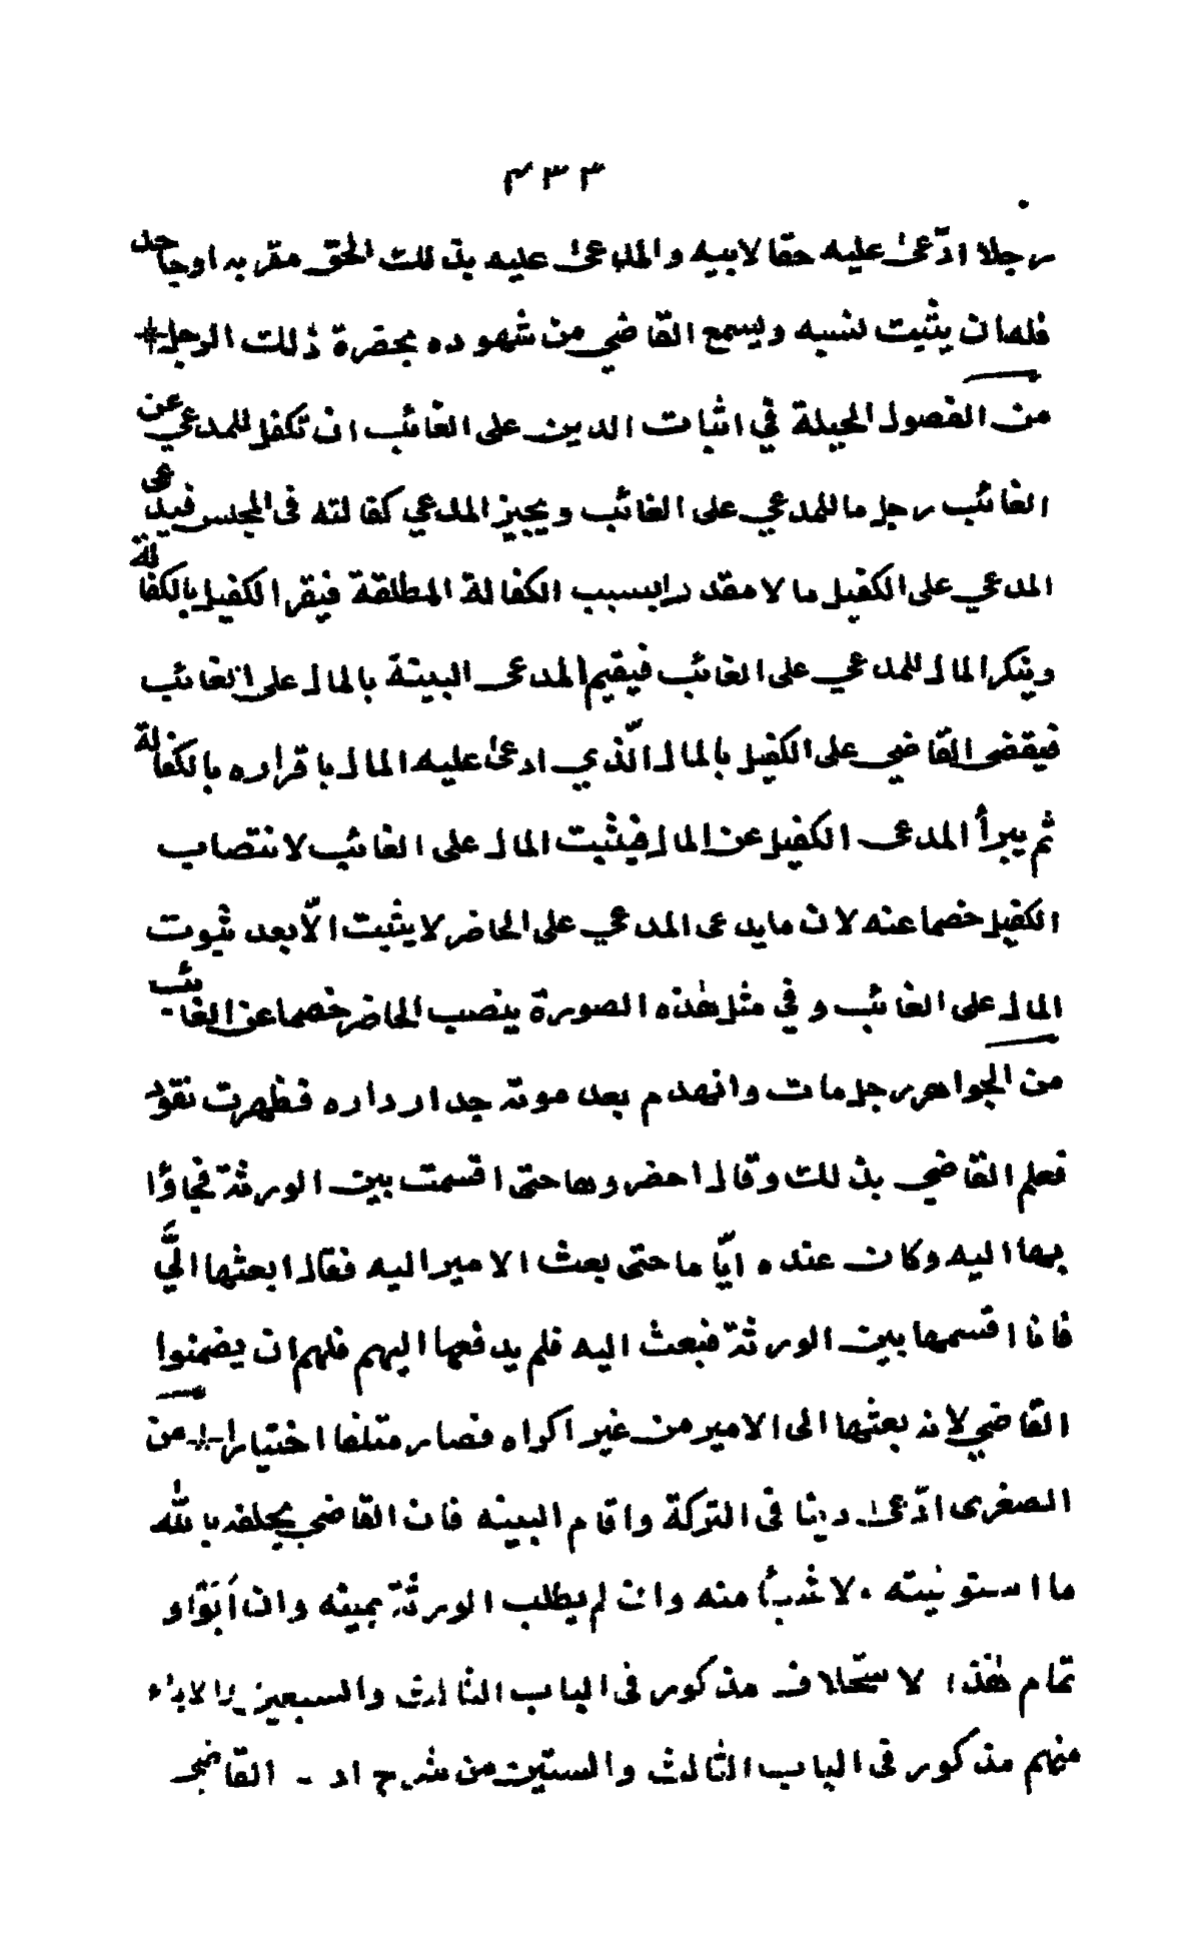 ٤٣٣
رجلا ادّعى عليه حقا لابيه والمدعى عليه بذلك الحق مقر به او جاحد
فله ان يثبت نسبه ويسمع القاضي من شهوده بحضرة ذلك الرجل
من الفصول الحيلة في اثبات الدين على الغائب ان تكفل للمدعي عن
الغائب رجل ما للمدعي على الغائب ويجيز المدعي كفالته فى المجلس فيدّعى
المدعي على الكفيل مالا مقدرا بسبب الكفالة المطلقة فيقر الكفيل بالكفالة
وينكر المال للمدعي على الغائب فيقيم المدعى البينة بالمال على الغائب
فيقضى القاضي على الكفيل بالمال الّذي ادعى عليه المال باقراره بالكفالة
ثم يبرأ المدعى الكفيل عن المال فيثبت المال على الغائب لانتصاب
الكفيل خصما عنه لان ما يدعى المدعي على الحاضر لا يثبت الّا بعد ثبوت
المال على الغائب وفي مثل هذه الصورة ينصب الحاضر خصما عن الغائب
من الجواهر رجل مات وانهدم بعد موته جدار داره فظهرت نقود
فعلم القاضي بذلك وقال احضروها حتى اقسمت بين الورثة فجاؤا
بها اليه وكان عنده ايّاما حتى بعث الامير اليه فقال ابعثها اليَّ
فانا اقسمها بين الورثة فبعث اليه فلم يدفعها اليهم فلهم ان يضمنوا
القاضي لانه بعثها الى الامير من غير اكراه فصار متلفا اختيارا من
الصغرى ادّعى دينا فى التركة واقام البينه فان القاضي يحلفه بالله
ما استوفيته ولا شيأ منه وان لم يطلب الورثة يمينه وان ابوا و
تمام هذا الاستحلاف مذكور فى الباب الثالث والسبعين والابراء
منهم مذكور فى الباب الثالث والستين من شرح اد - القاضي